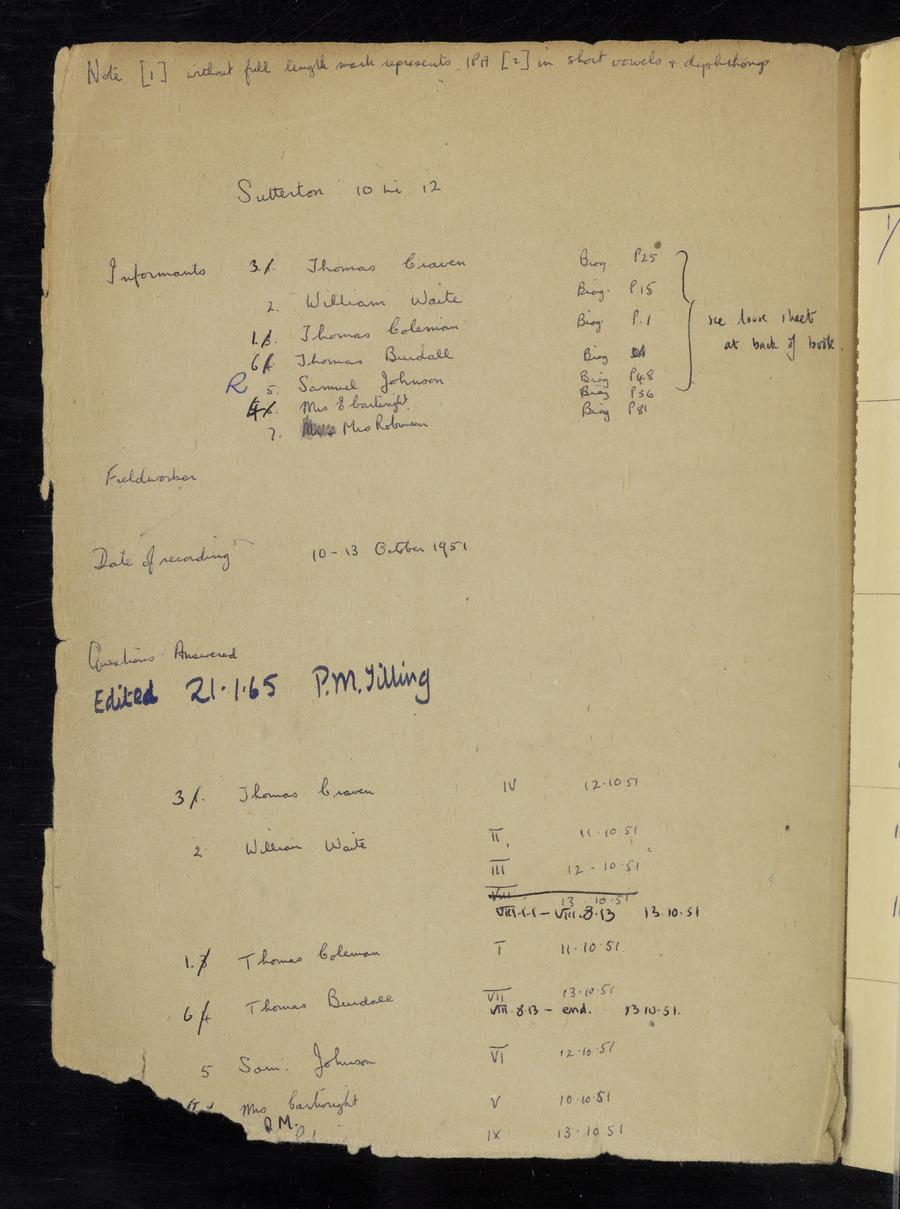 Note [1] without full length mark represents IPA [2] in short vowels + diphthongs
Sutterton 10 Li 12
Informants 3. Thomas Craven Biog. P25
2. William Waite Biog. P15
1. Thomas Coleman Biog P.1
see loose sheet
at back of book.
6 Thomas Burdall Biog
R 5. Samuel Johnson Biog P48
4 Mrs E Cartwright Biog P36
7. Mrs Robinson Biog P81
Fieldworker
Date of recording 10-13 October 1951
Questions Answered
Edited 21.1.65 P.M.Tilling
3 Thomas Craven IV 12.10.51
2 William Waite II, 11.10.51
III 12-10.51
VIII 13.10.51
VIII.1.1 - VIII.8.13 13.10.51
1. Thomas Coleman I 11.10.51
6 Thomas Burdall VII 13.10.51
VIII.8.13 - end. 13 10.51.
5 Sam. Johnson VI 12.10.51
Mrs Cartwright V 10.10.51
P.M. IX 13.10 51